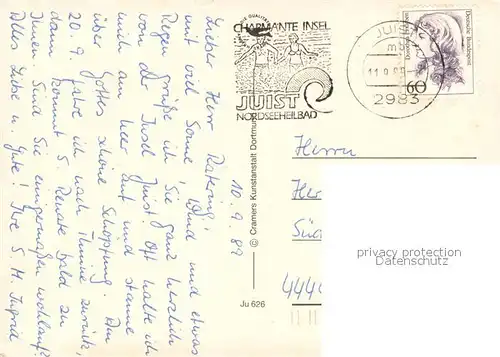 10. 9. 89
Lieber Herr Ratering!
mit viel Sonne, Wind und etwas
Regen grüße ich Sie ganz herzlich
von der Insel Juist. Oft halte ich
mich am Meer auf und staune
über Gottes schöne Schöpfung. Am
20. 9. fahre ich nach Ihnne zurück,
dann kommt S. Renate bald zu
Ihnen. Sind Sie einigermaßen wohlauf?
Alles Liebe u. Gute! Ihre S. M. Ingrid
© Cramers Kunstanstalt Dortmund
Ju 626
CHARMANTE INSEL
JUIST
NORDSEEHEILBAD
JUIST
11.9.89
2983
Deutsche Bundespost
60
Herrn
444
privacy protection
Datenschutz